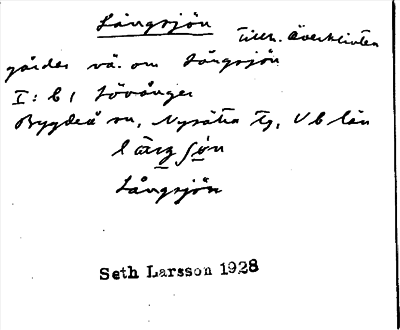 Långsjön tillh. Överklinten
gårdar vä. om Långsjön
I: b 1 Lövånger
Bygdeå sn, Nysätra tg, Vb län
Långsjön
Seth Larsson 1928